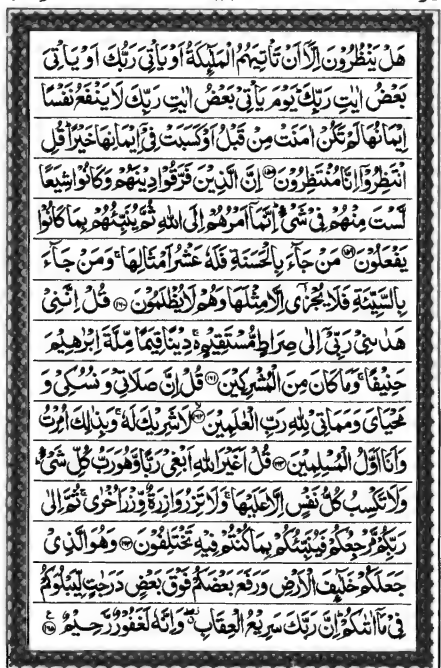 هَلْ يَنْظُرُوْنَ اِلَّاۤ اَنْ تَاْتِيَهُمُ الْمَلٰٓئِكَةُ اَوْ يَاْتِىَ رَبُّكَ اَوْ يَاْتِىَ
بَعْضُ اٰيٰتِ رَبِّكَ ؕ يَوْمَ يَاْتِىْ بَعْضُ اٰيٰتِ رَبِّكَ لَا يَنْفَعُ نَفْسًا
اِيْمَانُهَا لَمْ تَكُنْ اٰمَنَتْ مِنْ قَبْلُ اَوْ كَسَبَتْ فِىْۤ اِيْمَانِهَا خَيْرًا ؕ قُلِ
انْتَظِرُوْۤا اِنَّا مُنْتَظِرُوْنَ ﴿۱۵۸﴾ اِنَّ الَّذِيْنَ فَرَّقُوْا دِيْنَهُمْ وَكَانُوْا شِيَعًا
لَّسْتَ مِنْهُمْ فِىْ شَىْءٍ ؕ اِنَّمَاۤ اَمْرُهُمْ اِلَى اللّٰهِ ثُمَّ يُنَبِّئُهُمْ بِمَا كَانُوْا
يَفْعَلُوْنَ ﴿۱۵۹﴾ مَنْ جَآءَ بِالْحَسَنَةِ فَلَهٗ عَشْرُ اَمْثَالِهَا ۚ وَمَنْ جَآءَ
بِالسَّيِّئَةِ فَلَا يُجْزٰٓى اِلَّا مِثْلَهَا وَهُمْ لَا يُظْلَمُوْنَ ﴿۱۶۰﴾ قُلْ اِنَّنِىْ
هَدٰٮنِىْ رَبِّىْۤ اِلٰى صِرَاطٍ مُّسْتَقِيْمٍ ۚ دِيْنًا قِيَمًا مِّلَّةَ اِبْرٰهِيْمَ
حَنِيْفًا ۚ وَمَا كَانَ مِنَ الْمُشْرِكِيْنَ ﴿۱۶۱﴾ قُلْ اِنَّ صَلَاتِىْ وَنُسُكِىْ وَ
مَحْيَاىَ وَمَمَاتِىْ لِلّٰهِ رَبِّ الْعٰلَمِيْنَ ﴿۱۶۲﴾ لَا شَرِيْكَ لَهٗ ۚ وَبِذٰلِكَ اُمِرْتُ
وَاَنَا اَوَّلُ الْمُسْلِمِيْنَ ﴿۱۶۳﴾ قُلْ اَغَيْرَ اللّٰهِ اَبْغِىْ رَبًّا وَّهُوَ رَبُّ كُلِّ شَىْءٍ ؕ
وَلَا تَكْسِبُ كُلُّ نَفْسٍ اِلَّا عَلَيْهَا ۚ وَلَا تَزِرُ وَازِرَةٌ وِّزْرَ اُخْرٰى ۚ ثُمَّ اِلٰى
رَبِّكُمْ مَّرْجِعُكُمْ فَيُنَبِّئُكُمْ بِمَا كُنْتُمْ فِيْهِ تَخْتَلِفُوْنَ ﴿۱۶۴﴾ وَهُوَ الَّذِىْ
جَعَلَكُمْ خَلٰٓئِفَ الْاَرْضِ وَرَفَعَ بَعْضَكُمْ فَوْقَ بَعْضٍ دَرَجٰتٍ لِّيَبْلُوَكُمْ
فِىْ مَاۤ اٰتٰٮكُمْ ؕ اِنَّ رَبَّكَ سَرِيْعُ الْعِقَابِ ۖ وَاِنَّهٗ لَغَفُوْرٌ رَّحِيْمٌ ﴿۱۶۵﴾